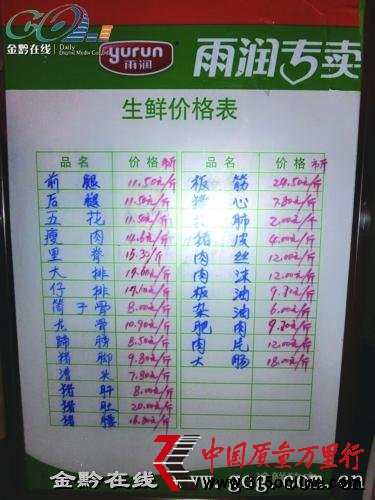 金黔在线
Daily
Digital Media
yurun
雨润
雨润专卖
生鲜价格表
品名 价格 品名 价格
前腿 11.50元/斤 板筋 24.50元/斤
后腿 11.50元/斤 猪心 7.80元/斤
五花 11.50元/斤 肺 2.00元/斤
瘦肉 14.80元/斤 猪皮 4.00元/斤
里脊 15.30元/斤 肉丝 12.00元/斤
大排 肉沫 12.00元/斤
仔排 板油 9.80元/斤
筒子骨 8.00元/斤 杂油 6.00元/斤
龙骨 10.90元/斤 肥肉 9.20元/斤
蹄膀 8.50元/斤 肉片 12.00元/斤
猪脚 9.80元/斤 大肠 18.00元/斤
猪头 7.80元/斤
猪肝 8.00元/斤
猪肚 20.00元/斤
猪腰 16.80元/斤
中国质量万里行
金黔在线
www.315online.com.cn